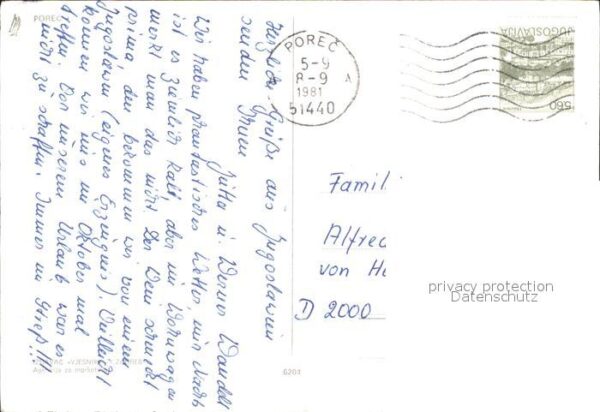 POREČ
Herzliche Grüße aus Jugoslawien
senden Ihnen
Jutta u. Werner
Wir haben phantastisches Wetter, nur Nachts
ist es ziemlich kalt, aber im Wohnwagen
merkt man das nicht. Der Wein schmeckt
prima den bekommen wir von einem
Jugoslawen (eigenes Erzeugnis). Vielleicht
können wir uns im Oktober mal
treffen. Vor unserem Urlaub war es
nicht zu schaffen. Immer im Streß!!!
POREČ
5-9
8-9 A
1981
51440
JUGOSLAVIJA
560
Famili
Alfred
von He
D 2000
privacy protection
Datenschutz
6204